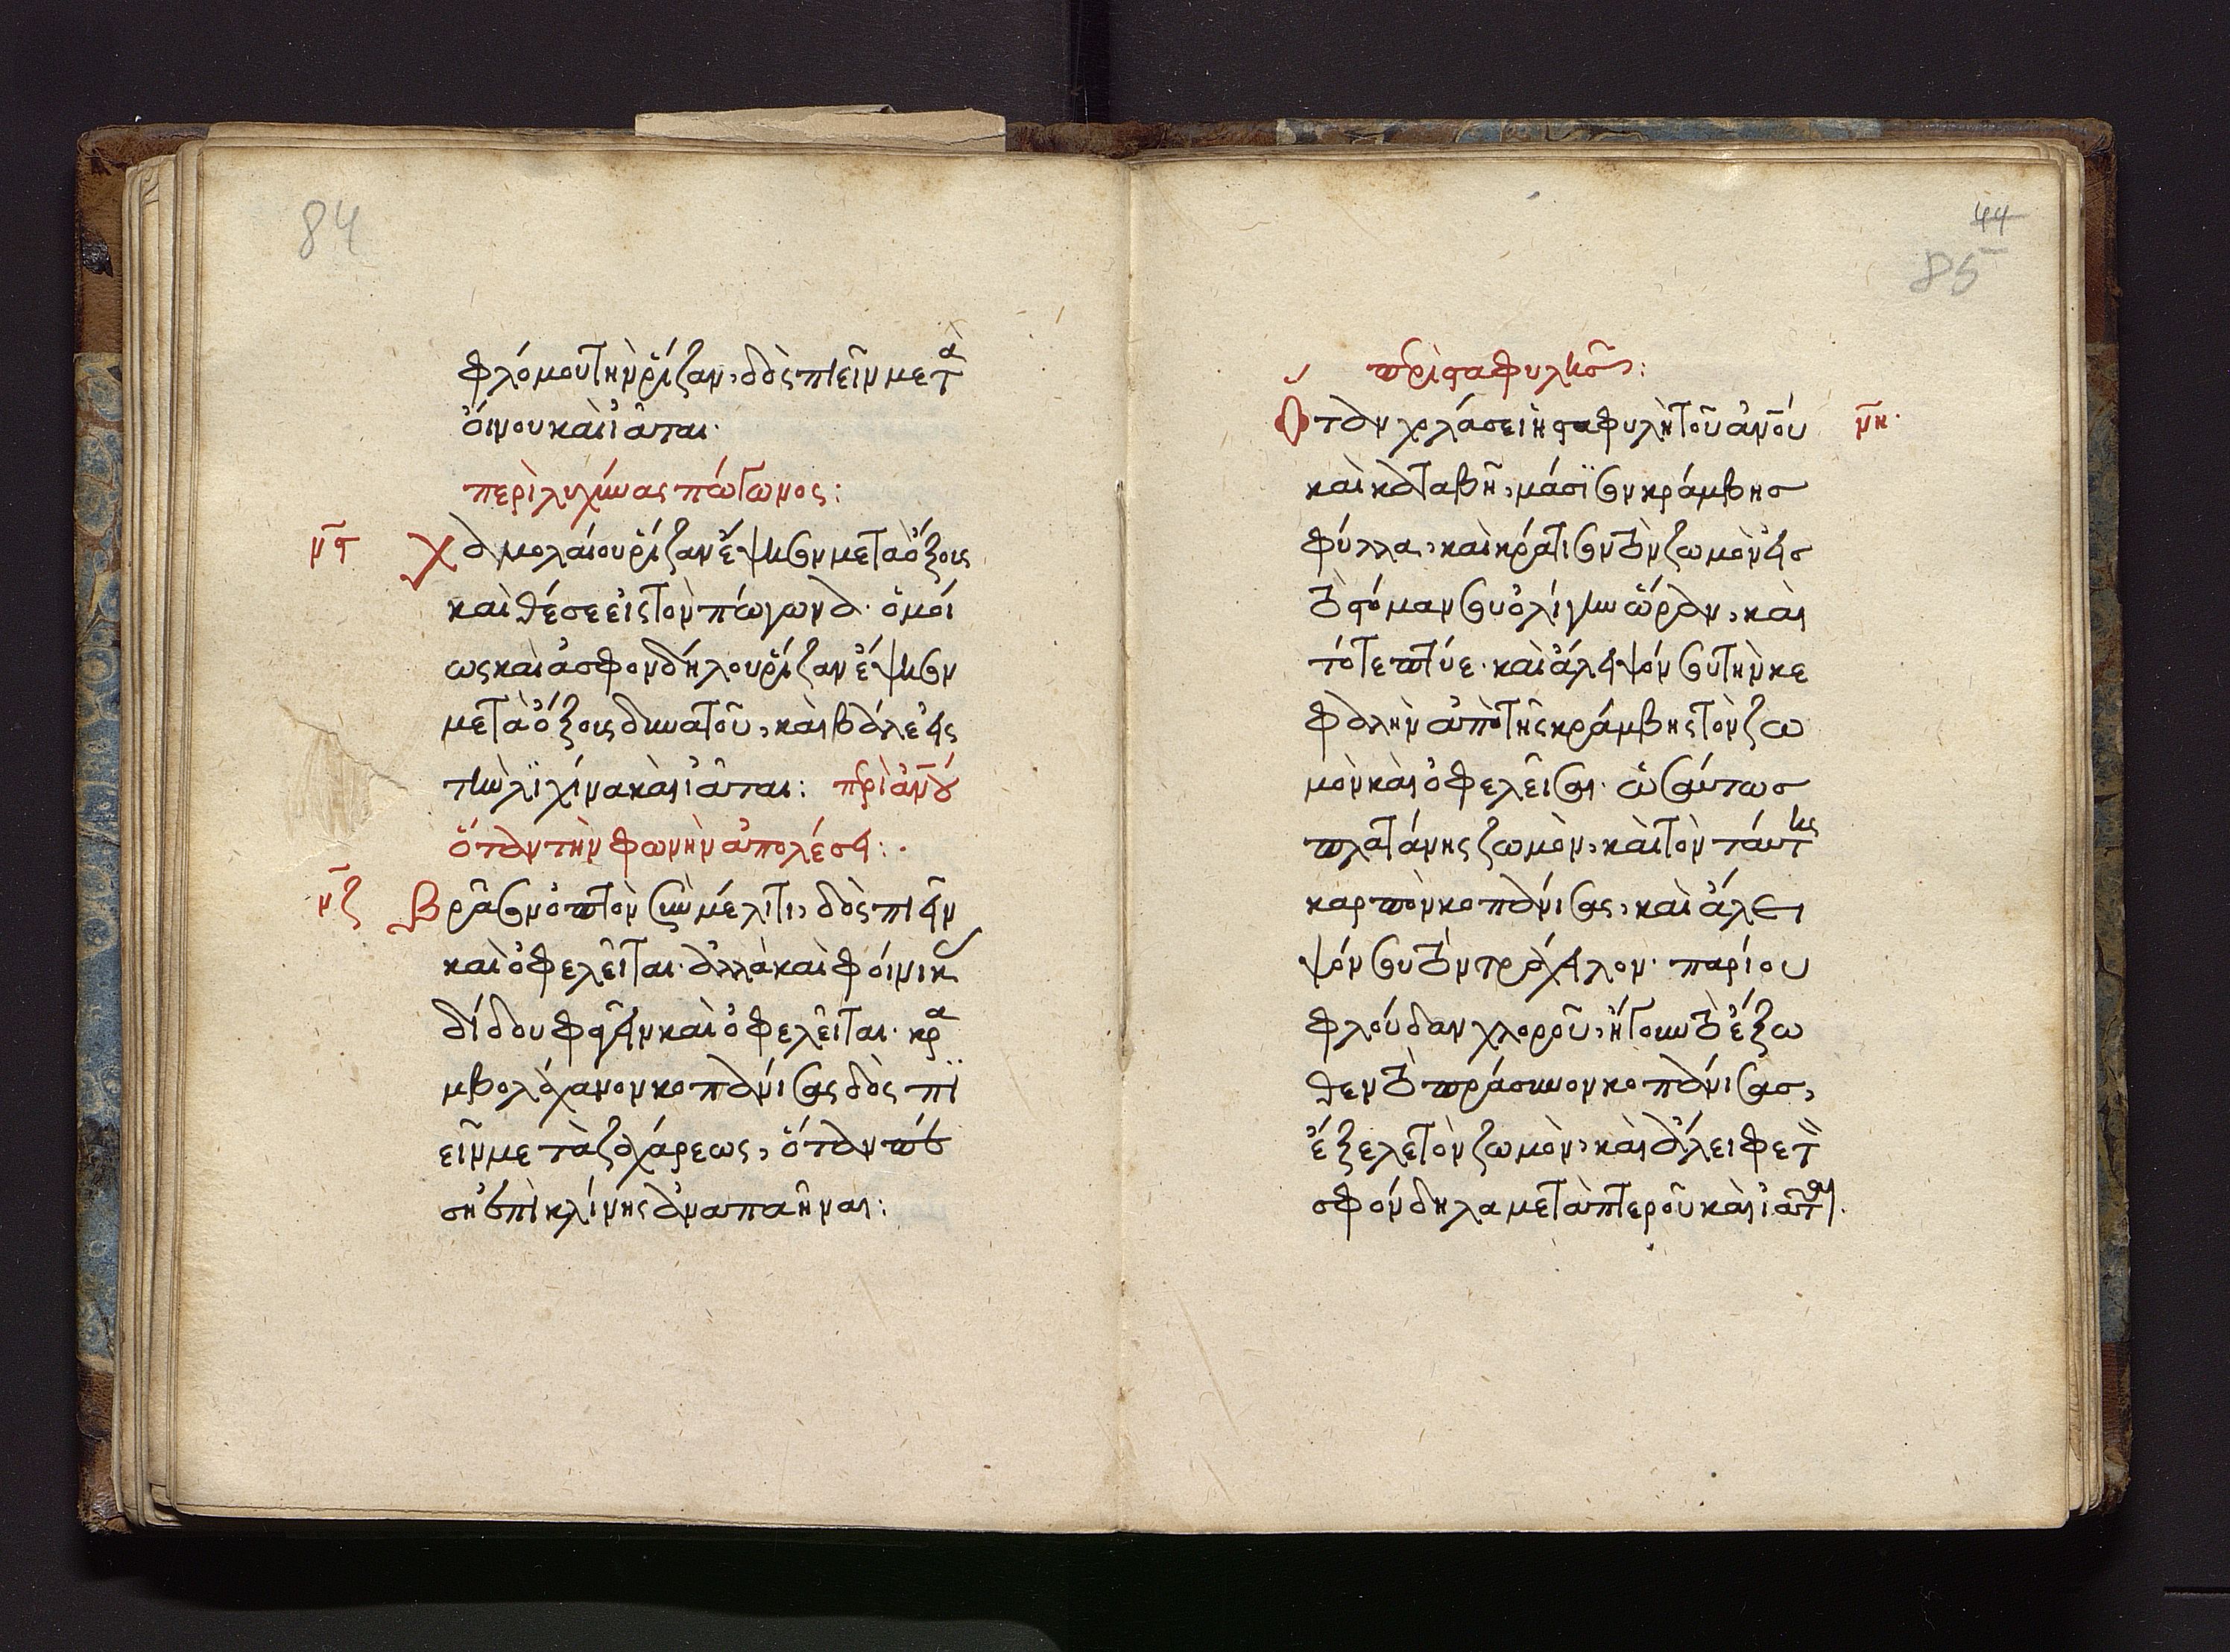 84
φλόμου τὴν ῥίζαν, δὸς πιεῖν μετὰ
ὄινου καὶ ἰᾶται.
περὶ λυχίνας πώγωνος:
μϛ Χαμολαίου ῥίζαν ἕψησον μετὰ ὄξους
καὶ θέσε εἰς τὸν πώγωνα. ὁμοί
ως καὶ ἀσφονδήλου ῥίζαν ἕψησον
μετὰ ὄξους δυνατοῦ, καὶ βάλε εἰς
τὴν λϊχίνα καὶ ἰᾶται: περὶ ἀνοῦ
ὅταν τὴν φωνὴν ἀπολέσει:.
μζ Βρᾶσον ὀπτὸν σὺν μέλιτι, δὸς πιεῖν
καὶ ὀφελεῖται. ἀλλὰ καὶ φοίνικας
δίδου φαγεῖν καὶ ὀφελεῖται. κρα
μβολάχανον κοπανίσας δὸς πϊ
εῖν μετὰ ζαχάρεως, ὅταν
εἰς κλίνης ἀναπαῆναι:
44
85
περὶ σταφυλῆς:
Ὅταν χολάσει ἡ σταφυλὴ τοῦ ἀνοῦ μη.
καὶ καταβῆ, μάσϊσον κράμβης
φύλλα, καὶ κράτισον τὸν ζωμὸν εἰς
τὸ στόμαν σου ὀλίγην ὥραν, καὶ
τότε πτύε. καὶ ἄλειψόν σου τὴν κε
φαλὴν ἀπὸ τῆς κράμβης τὸν ζω
μὸν καὶ ὀφελεῖσαι. ὡσαύτως
πλατάνης ζωμὸν, καὶ τὸν ταύτης
καρπὸν κοπανίσας, καὶ ἄλει
ψόν σου τὸν τράχειλον. καρίου
φλούδαν χλοροῦ, ἤγουν τὸ ἔξω
θεν τὸ πράσινον κοπανίσας,
ἔξελε τὸν ζωμὸν, καὶ ἄλειφε τὰ
σφόνδηλα μετὰ πτεροῦ καὶ ἰᾶται.